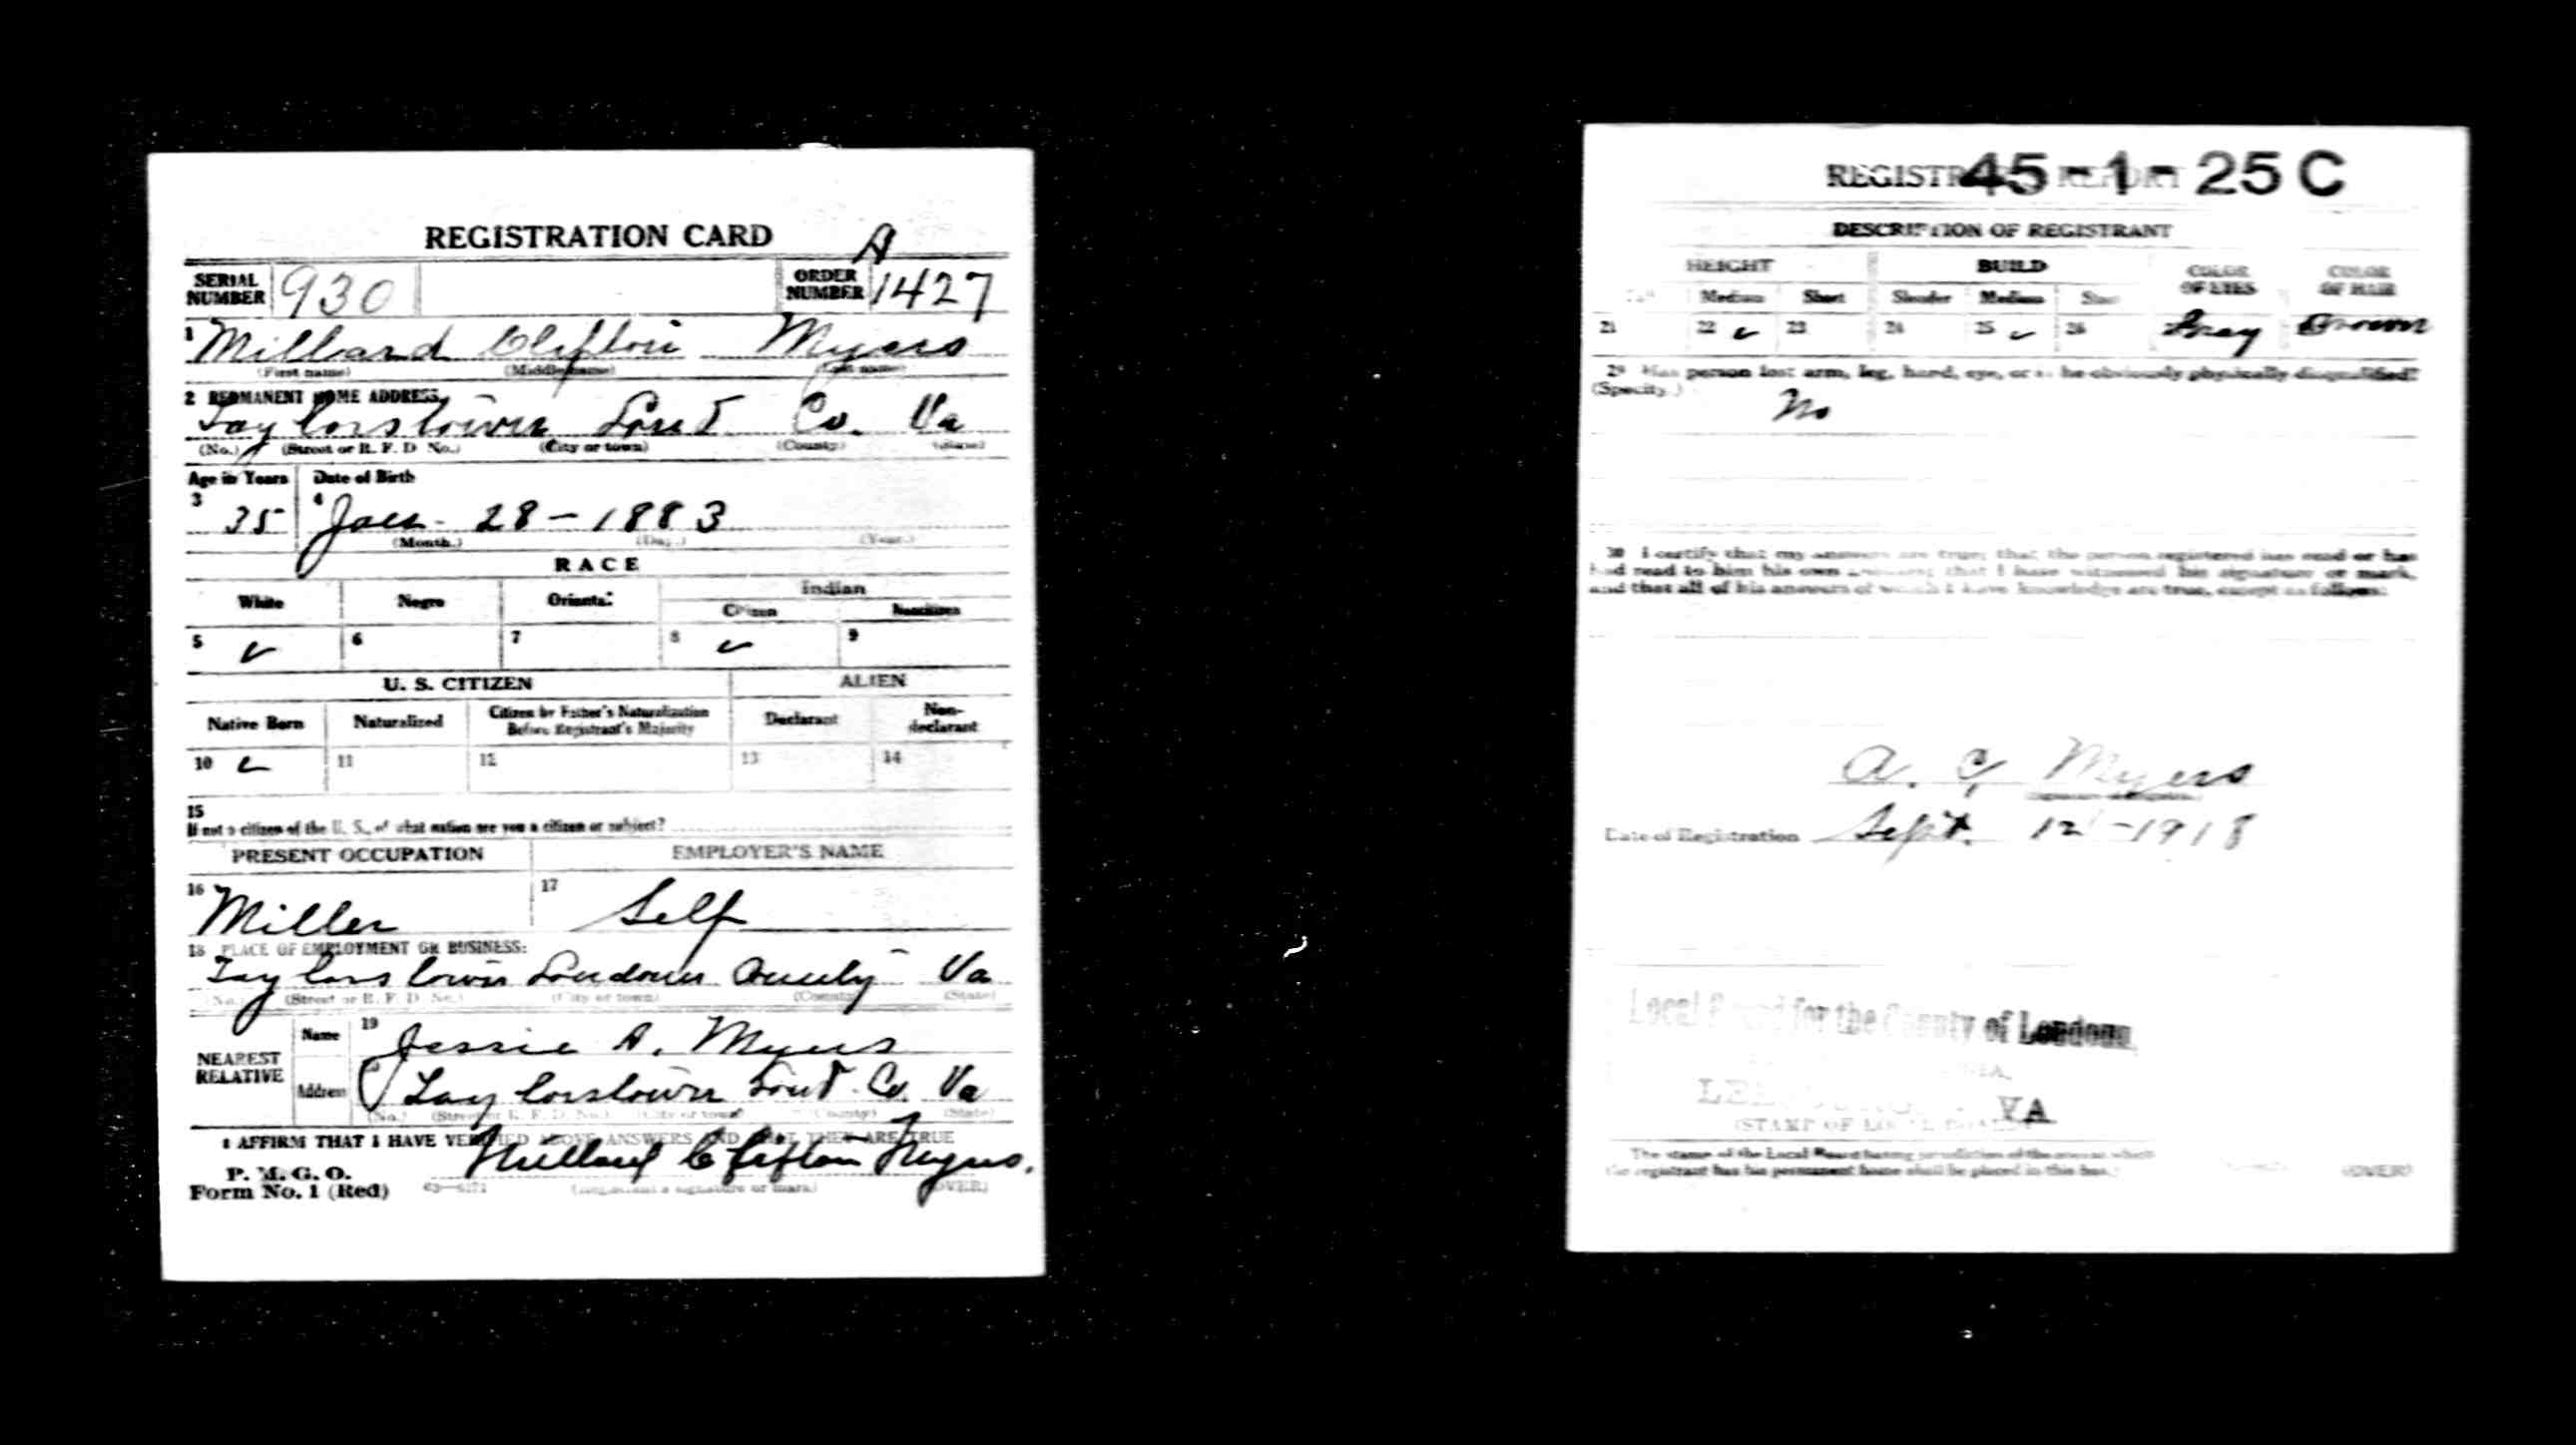 REGISTRATION CARD
A
SERIAL NUMBER 930 ORDER NUMBER 1427
1 Millard Clifton Myers
(First name) (Middle name) (Last name)
2 PERMANENT HOME ADDRESS
Taylorstown Loud Co. Va
(No.) (Street or R. F. D. No.) (City or town) (County) (State)
Age in Years Date of Birth
3 35 4 Jan - 28 - 1883
(Month.) (Day.) (Year.)
RACE
White Negro Oriental Indian
Citizen Noncitizen
5 ✓ 6 7 8 ✓ 9
U. S. CITIZEN ALIEN
Native Born Naturalized Citizen by Father's Naturalization Before Registrant's Majority Declarant Non-declarant
10 ✓ 11 12 13 14
15
If not a citizen of the U. S., of what nation are you a citizen or subject?
PRESENT OCCUPATION EMPLOYER'S NAME
16 Miller 17 Self
18 PLACE OF EMPLOYMENT OR BUSINESS:
Taylorstown Loudoun County Va
(No.) (Street or R. F. D. No.) (City or town) (County) (State)
NEAREST RELATIVE Name 19 Jessie A. Myers
Address Taylorstown Loud Co. Va
(No.) (Street or R. F. D. No.) (City or town) (County) (State)
I AFFIRM THAT I HAVE VERIFIED ABOVE ANSWERS AND THAT THEY ARE TRUE
P. M. G. O.
Form No. 1 (Red) Millard Clifton Myers.
(Registrant's signature or mark) (OVER)
REGISTRAR'S REPORT 45-1-25 C
DESCRIPTION OF REGISTRANT
HEIGHT BUILD COLOR OF EYES COLOR OF HAIR
Tall Medium Short Slender Medium Stout
21 22 ✓ 23 24 25 ✓ 26 Gray Brown
29 Has person lost arm, leg, hand, eye, or is he obviously physically disqualified?
(Specify.) No
30 I certify that my answers are true; that the person registered has read or has
had read to him his own answers; that I have witnessed his signature or mark,
and that all of his answers of which I have knowledge are true, except as follows:
Myers
Date of Registration Sept. 12 - 1918
Local Board for the County of Loudoun,
VA
(STAMP OF LOCAL BOARD)
The stamp of the Local Board having jurisdiction of the area in which
the registrant has his permanent home shall be placed in this box.
(OVER)